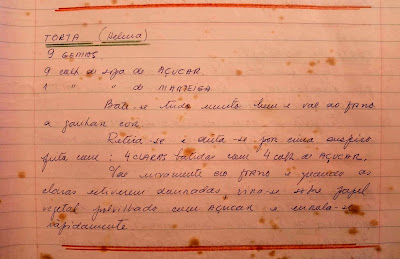 TORTA (Helena)
9 GEMAS
9 colh de sopa de AÇUCAR
1 " " de MANTEIGA
Bate-se tudo muito bem e vai ao forno
a ganhar cor.
Retira-se e deita-se por cima suspiro
feito com: 4 CLARAS batidas com 4 colh de AÇUCAR.
Vai novamente ao FORNO e quando as
claras estiverem douradas, vira-se sobre papel
vegetal polvilhado com AÇUCAR e enrola-se
rapidamente